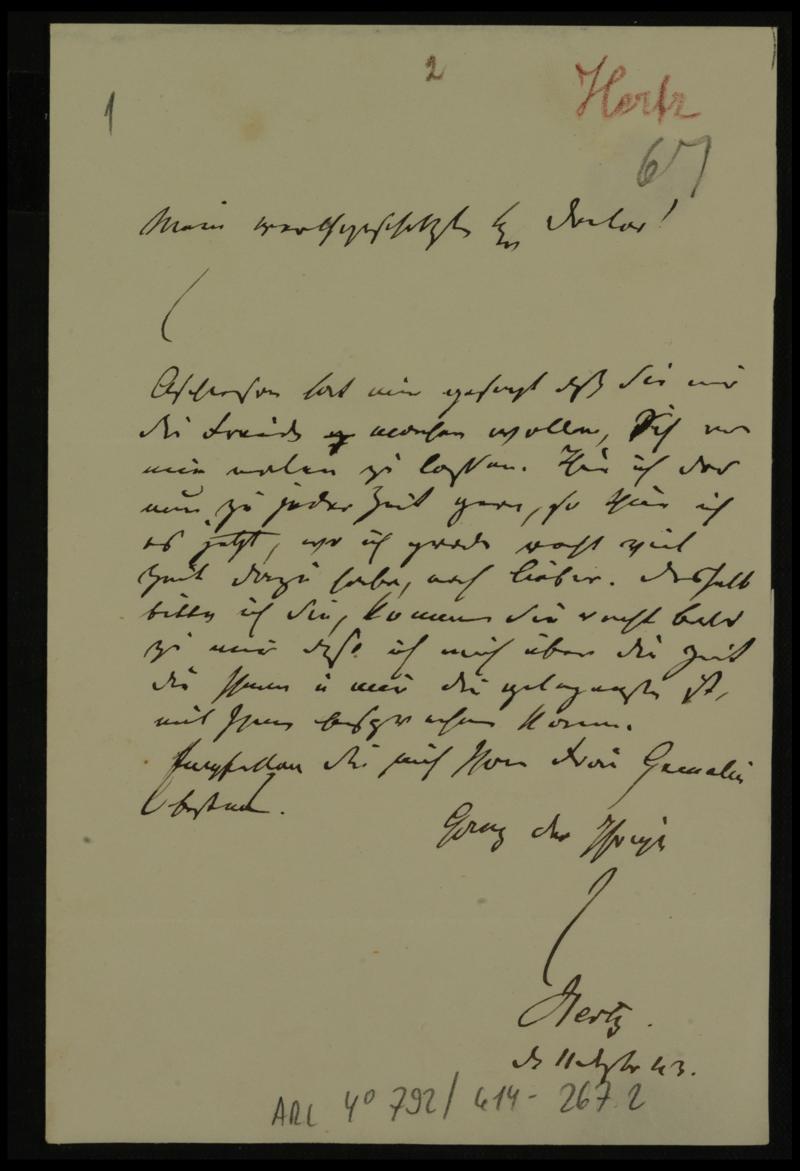 2
Hertz
1
67
Mein werthgeschätzter Hr Doctor!
hat mir gesagt daß Sie mir
die Freude machen wollen, Sich von
mir malen zu lassen. Thue ich das
nun zu jeder Zeit gern, so thue ich
es jetzt, wo ich grade recht viel
Zeit dazu habe, noch lieber. Deshalb
bitte ich Sie, kommen Sie recht bald
zu mir daß ich mich über die Zeit
die Ihnen u mir die gelegenste ist,
mit Ihnen besprechen kann.
Empfehlen Sie mich Ihrer Frau Gemalin
bestens.
Ganz der Ihrige
Hertz.
43.
ARC 4° 792/ 414- 267.2